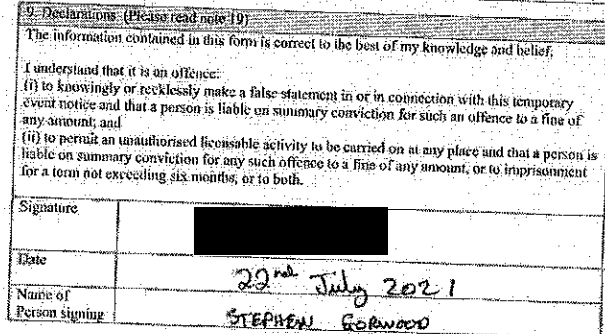 9. Declarations (Please read note 19)
The information contained in this form is correct to the best of my knowledge and belief.
I understand that it is an offence:
(i) to knowingly or recklessly make a false statement in or in connection with this temporary
event notice and that a person is liable on summary conviction for such an offence to a fine of
any amount; and
(ii) to permit an unauthorised licensable activity to be carried on at any place and that a person is
liable on summary conviction for any such offence to a fine of any amount, or to imprisonment
for a term not exceeding six months, or to both.
Signature
Date
22nd July 2021
Name of
Person signing
STEPHEN GORWOOD